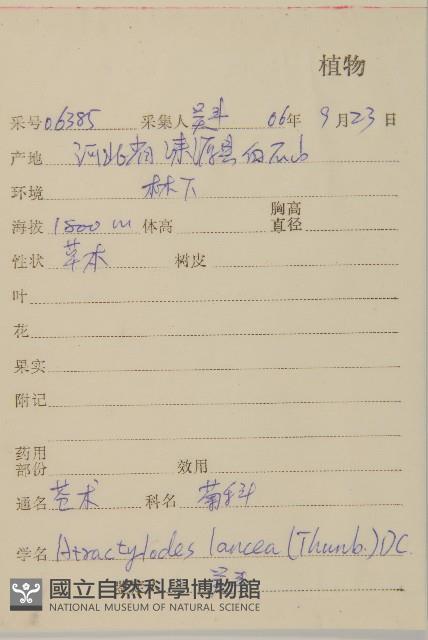 植物
采号 06385 采集人 吴斗 06年 9月23日
产地 河北省涞源县白石山
环境 林下
海拔 1500 m 体高 胸高直径
性状 草本 树皮
叶
花
果实
附记
药用部份 效用
通名 苍术 科名 菊科
学名 Atractylodes lancea (Thunb.) DC.
國立自然科學博物館
NATIONAL MUSEUM OF NATURAL SCIENCE